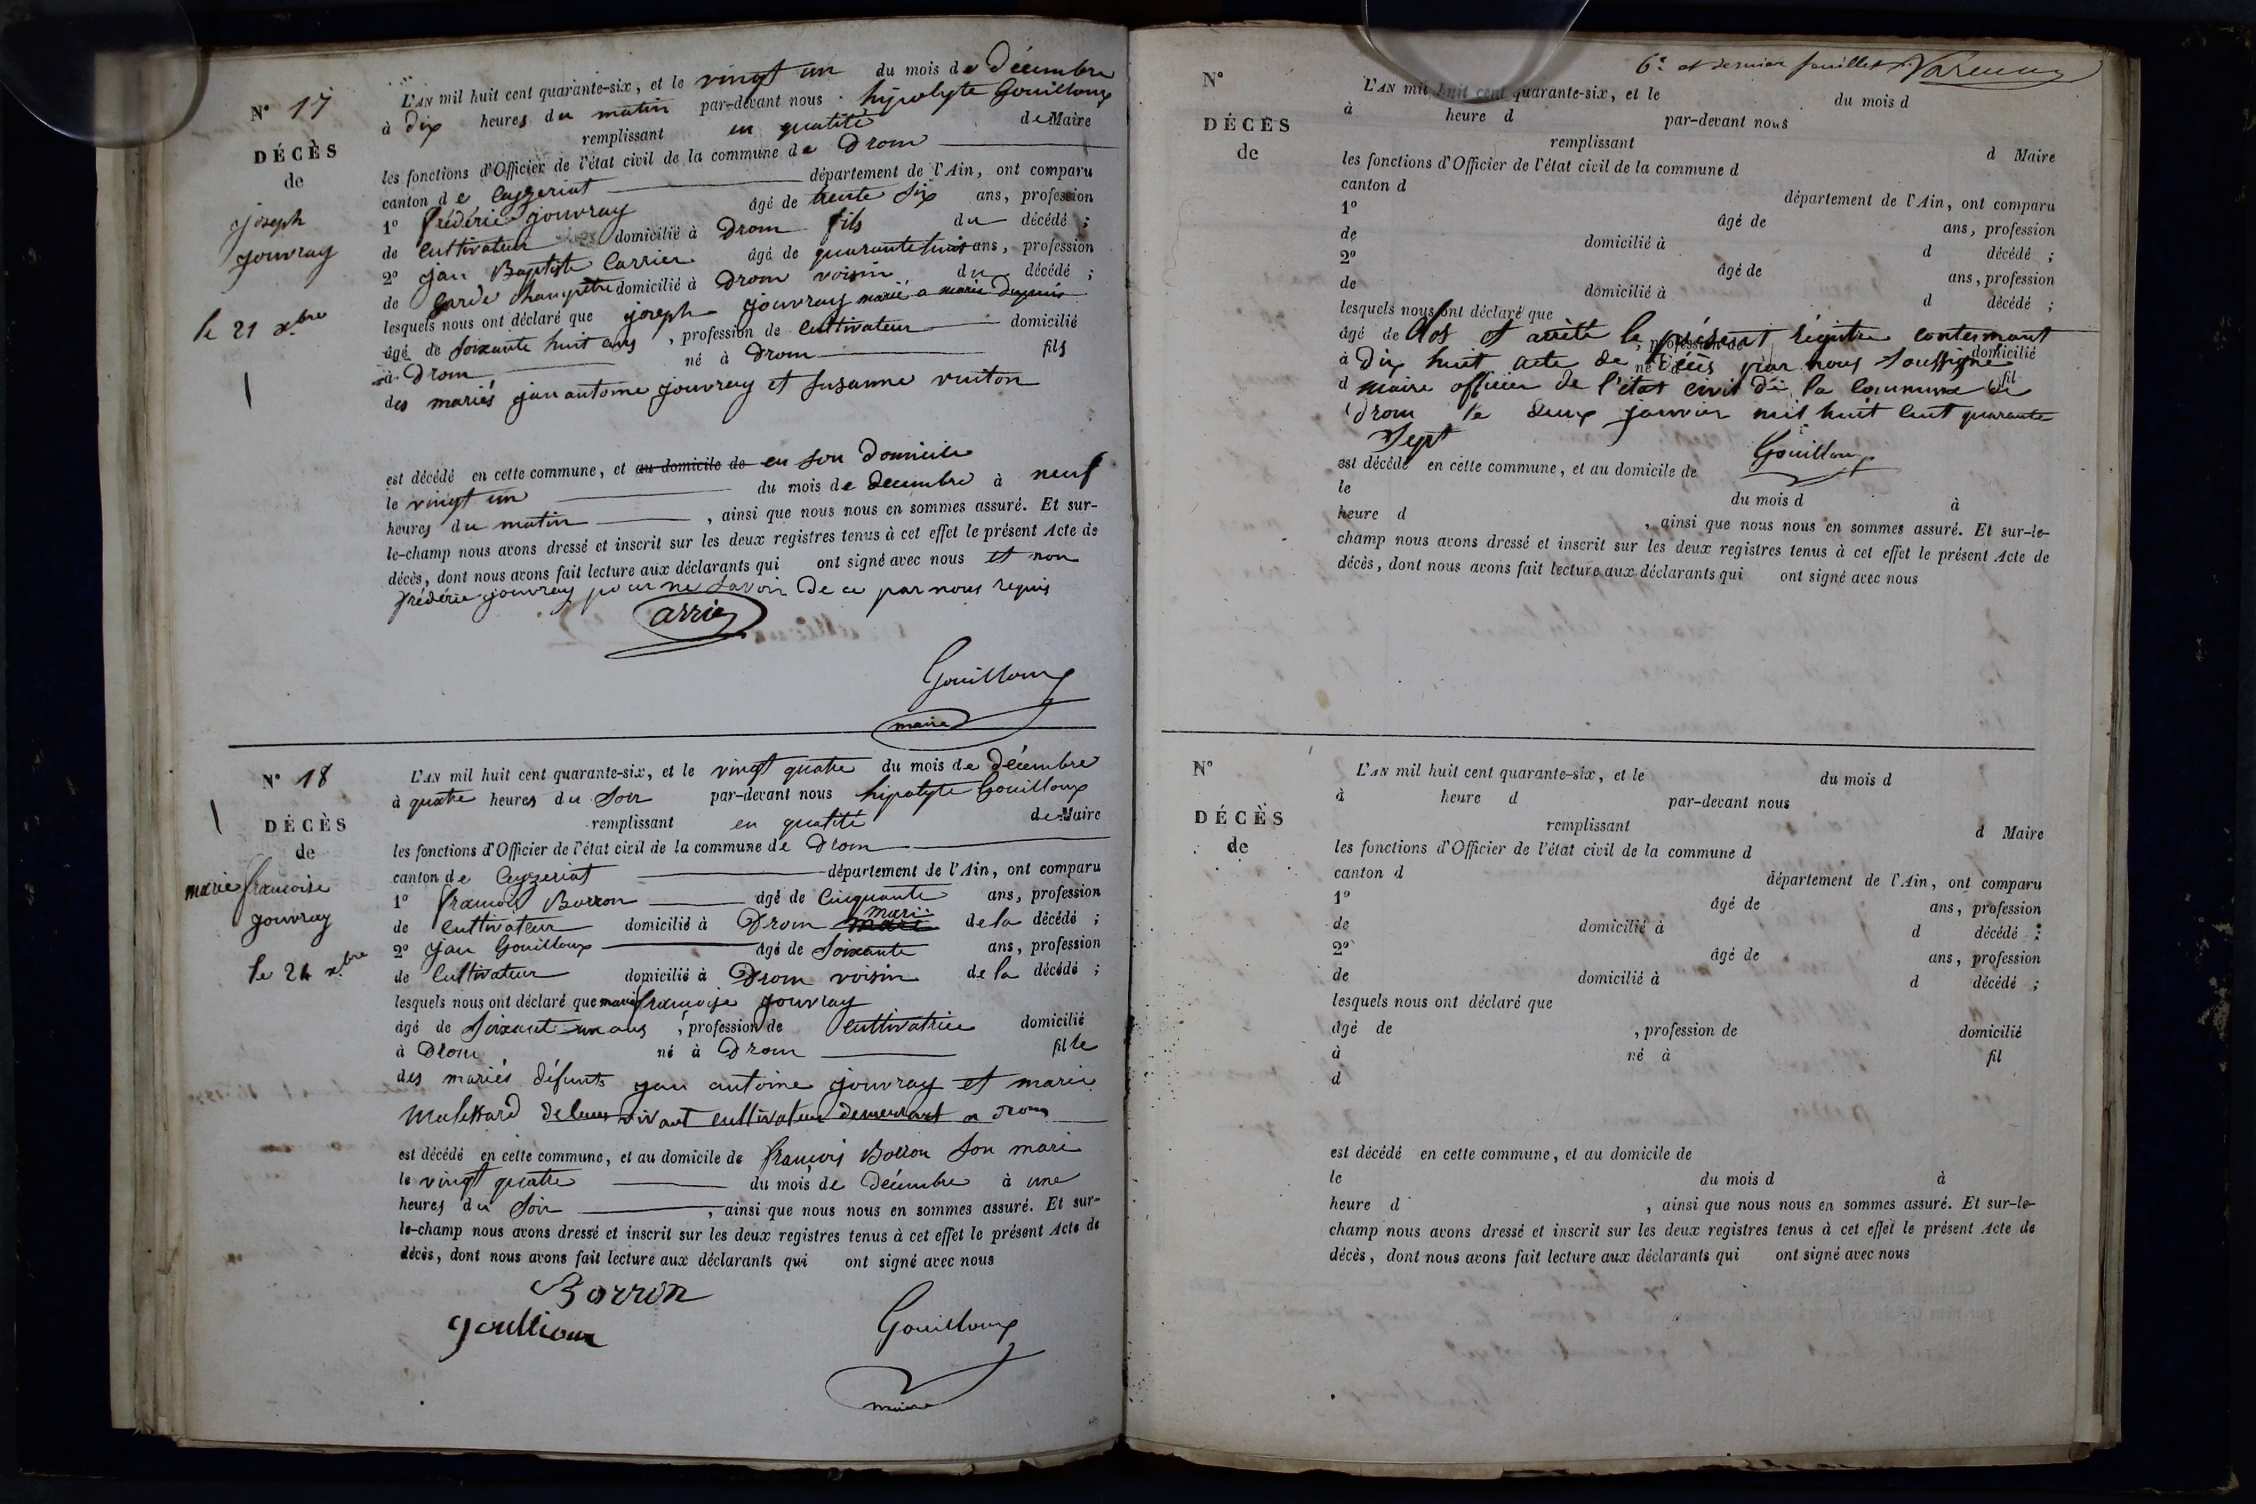 N° 17
DÉCÈS
de
joseph
jouvray
le 21 xbre
L'AN mil huit cent quarante-six, et le vingt un du mois de décembre
à dix heures du matin par-devant nous hipolyte Gouilloux
remplissant en qualité de Maire
les fonctions d'Officier de l'état civil de la commune de Drom
canton de Ceyzeriat département de l'Ain, ont comparu
1° frédéric jouvray âgé de trente six ans, profession
de cultivateur domicilié à Drom fils du décédé ;
2° jean Baptiste Carrier âgé de quarante huit ans, profession
de garde champêtre domicilié à Drom voisin du décédé ;
lesquels nous ont déclaré que joseph jouvray marié a marie
âgé de soixante huit ans, profession de cultivateur domicilié
à Drom né à Drom fils
des mariés jean antoine jouvray et suzanne
est décédé en cette commune, et au domicile de en son domicile
le vingt un du mois de décembre à neuf
heures du matin, ainsi que nous nous en sommes assuré. Et sur-
le-champ nous avons dressé et inscrit sur les deux registres tenus à cet effet le présent Acte de
décès, dont nous avons fait lecture aux déclarants qui ont signé avec nous et non
frédéric jouvray pour ne savoir de ce par nous requis
Gouilloux
maire
N° 18
DÉCÈS
de
marie francoise
jouvray
le 24 xbre
L'AN mil huit cent quarante-six, et le vingt quatre du mois de décembre
à quatre heures du soir par-devant nous hipolyte Gouilloux
remplissant en qualité de Maire
les fonctions d'Officier de l'état civil de la commune de Drom
canton de Ceyzeriat département de l'Ain, ont comparu
1° francois Borron âgé de cinquante ans, profession
mari
de cultivateur domicilié à Drom mari de la décédé ;
2° jean Gouilloux âgé de soixante ans, profession
de cultivateur domicilié à Drom voisin de la décédé ;
lesquels nous ont déclaré que marie francoise jouvray
âgé de soixante un ans, profession de cultivatrice domicilié
à Drom né à Drom fille
des mariés défunts jean antoine jouvray et marie
de leur vivant cultivateur demeurant a Drom
est décédé en cette commune, et au domicile de françois Borron son mari
le vingt quatre du mois de décembre à une
heures du soir, ainsi que nous nous en sommes assuré. Et sur-
le-champ nous avons dressé et inscrit sur les deux registres tenus à cet effet le présent Acte de
décès, dont nous avons fait lecture aux déclarants qui ont signé avec nous
Borron
goullioux
Gouilloux
maire
6e et dernier feuillet
N°
DÉCÈS
de
L'AN mil huit cent quarante-six, et le du mois d
à heure d par-devant nous
remplissant d Maire
les fonctions d'Officier de l'état civil de la commune d
canton d département de l'Ain, ont comparu
1° âgé de ans, profession
de domicilié à d décédé ;
2° âgé de ans, profession
de domicilié à d décédé ;
lesquels nous ont déclaré que
âgé de , profession de domicilié
Clos et arrêté le présent régistre contennant
à né à fil
dix huit acte de décès par nous soussigné
d
maire officier de l'état civil de la commune de
Drom le deux janvier mil huit cent quarante
sept
Gouilloux
est décédé en cette commune, et au domicile de
le du mois d à
heure d , ainsi que nous nous en sommes assuré. Et sur-le-
champ nous avons dressé et inscrit sur les deux registres tenus à cet effet le présent Acte de
décès, dont nous avons fait lecture aux déclarants qui ont signé avec nous
N°
DÉCÈS
de
L'AN mil huit cent quarante-six, et le du mois d
à heure d par-devant nous
remplissant d Maire
les fonctions d'Officier de l'état civil de la commune d
canton d département de l'Ain, ont comparu
1° âgé de ans, profession
de domicilié à d décédé ;
2° âgé de ans, profession
de domicilié à d décédé ;
lesquels nous ont déclaré que
âgé de , profession de domicilié
à né à fil
d
est décédé en cette commune, et au domicile de
le du mois d à
heure d , ainsi que nous nous en sommes assuré. Et sur-le-
champ nous avons dressé et inscrit sur les deux registres tenus à cet effet le présent Acte de
décès, dont nous avons fait lecture aux déclarants qui ont signé avec nous